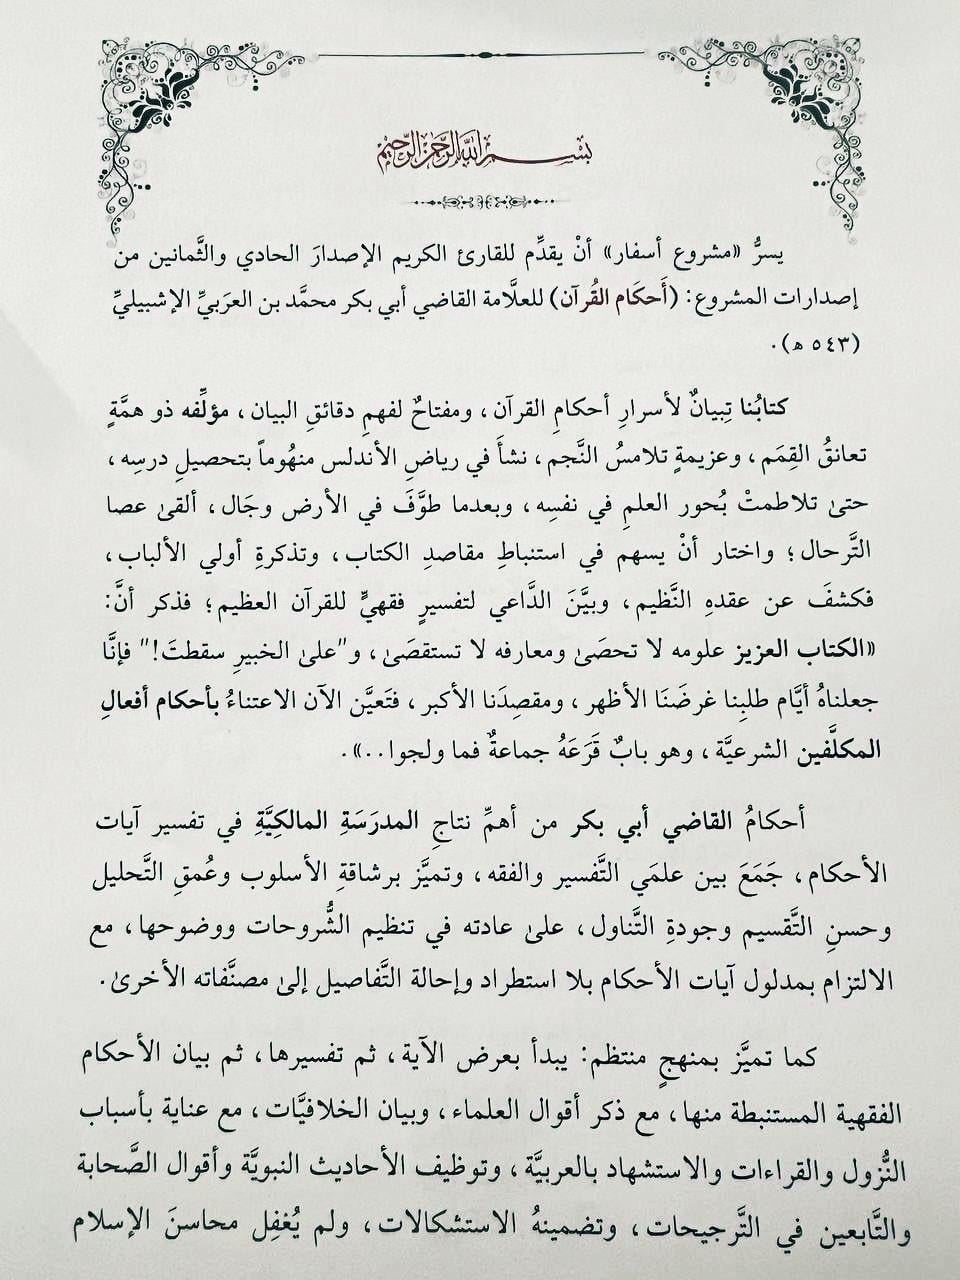 بسم الله الرحمن الرحيم
يسرُّ «مشروع أسفار» أنْ يقدِّم للقارئ الكريم الإصدارَ الحادي والثَّمانين من
إصدارات المشروع: (أَحكَام القُرآن) للعلَّامة القاضي أبي بكر محمَّد بن العرَبيِّ الإشبيليِّ
(٥٤٣ هـ).
كتابُنا تِبيانٌ لأسرارِ أحكامِ القرآن، ومفتاحٌ لفهمِ دقائقِ البيان، مؤلِّفه ذو همَّةٍ
تعانقُ القِمَم، وعزيمةٍ تلامسُ النَّجم، نشأَ في رياضِ الأندلس منهُوماً بتحصيلِ درسِه،
حتىٰ تلاطمتْ بُحور العلمِ في نفسِه، وبعدما طوَّفَ في الأرض وجَال، ألقىٰ عصا
التَّرحال؛ واختار أنْ يسهم في استنباطِ مقاصدِ الكتاب، وتذكرةِ أولي الألباب،
فكشفَ عن عقدهِ النَّظيم، وبيَّنَ الدَّاعي لتفسيرٍ فقهيٍّ للقرآن العظيم؛ فذكر أنَّ:
«الكتاب العزيز علومه لا تحصَىٰ ومعارفه لا تستقصَىٰ، و"علىٰ الخبيرِ سقطتَ!" فإنَّا
جعلناهُ أيَّام طلبِنا غرضَنَا الأظهر، ومقصِدَنا الأكبر، فتَعيَّن الآن الاعتناءُ بأحكام أفعالِ
المكلَّفين الشرعيَّة، وهو بابٌ قَرَعَهُ جماعةٌ فما ولجوا..».
أحكامُ القاضي أبي بكر من أهمِّ نتاجِ المدرَسَةِ المالكِيَّةِ في تفسير آيات
الأحكام، جَمَعَ بين علمَي التَّفسير والفقه، وتميَّز برشاقةِ الأسلوب وعُمقِ التَّحليل
وحسنِ التَّقسيم وجودةِ التَّناول، علىٰ عادته في تنظيم الشُّروحات ووضوحها، مع
الالتزام بمدلول آيات الأحكام بلا استطراد وإحالة التَّفاصيل إلىٰ مصنَّفاته الأخرىٰ.
كما تميَّز بمنهجٍ منتظم: يبدأ بعرض الآية، ثم تفسيرها، ثم بيان الأحكام
الفقهية المستنبطة منها، مع ذكر أقوال العلماء، وبيان الخلافيَّات، مع عناية بأسباب
النُّزول والقراءات والاستشهاد بالعربيَّة، وتوظيف الأحاديث النبويَّة وأقوال الصَّحابة
والتَّابعين في التَّرجيحات، وتضمينهُ الاستشكالات، ولم يُغفِل محاسنَ الإسلام